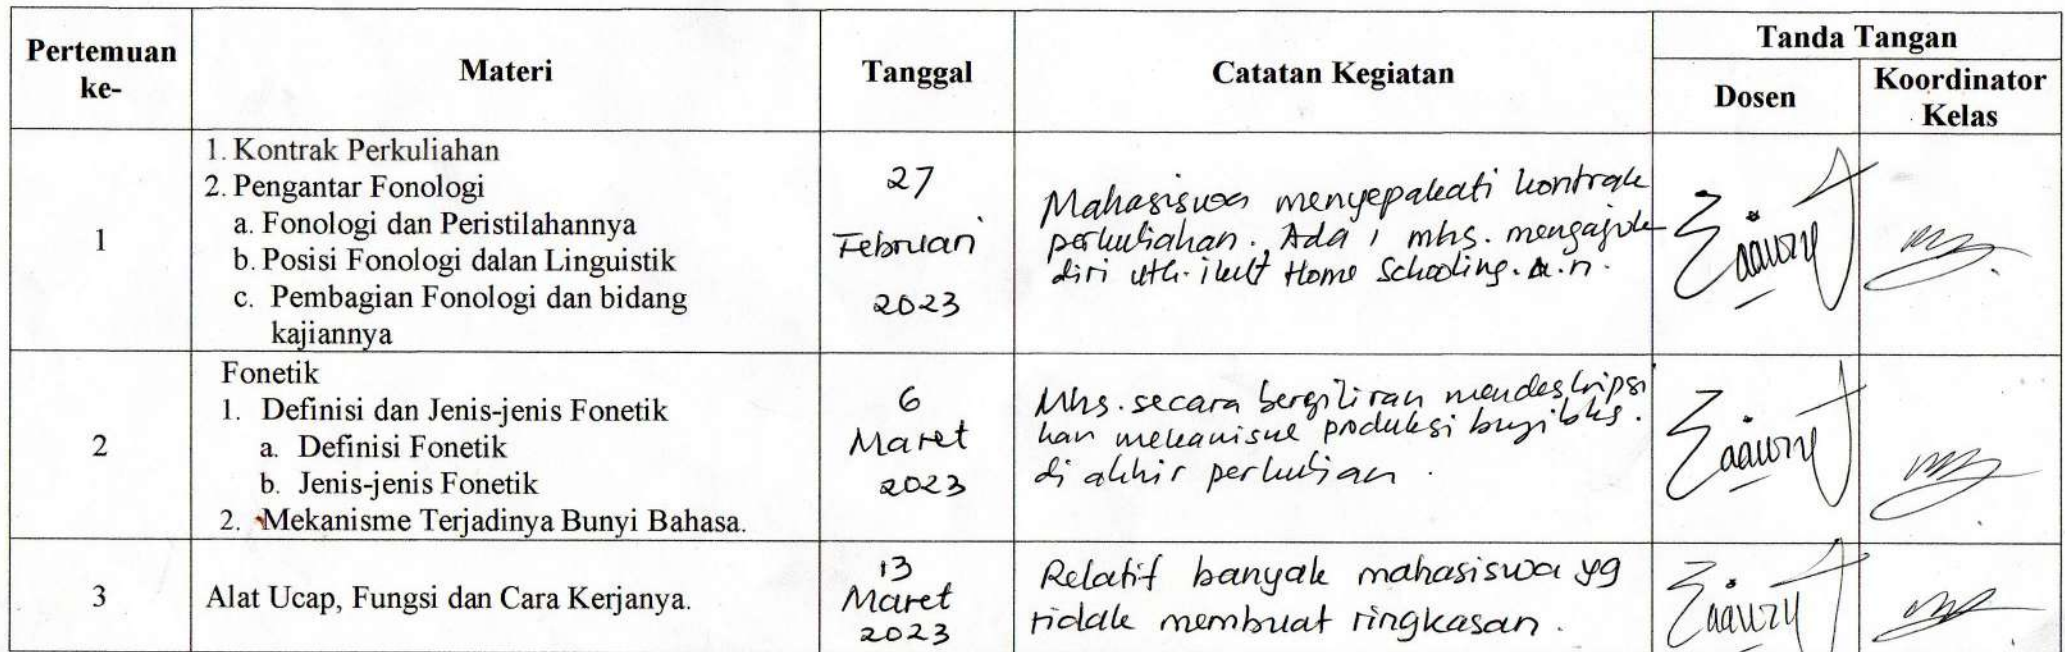 Pertemuan ke-
Materi
Tanggal
Catatan Kegiatan
Tanda Tangan
Dosen
Koordinator Kelas
1
1. Kontrak Perkuliahan
2. Pengantar Fonologi
a. Fonologi dan Peristilahannya
b. Posisi Fonologi dalan Linguistik
c. Pembagian Fonologi dan bidang
kajiannya
27
Februari
2023
Mahasiswa menyepakati kontrak
perkuliahan. Ada 1 mhs. mengajuk
diri utk. ikut Home Schooling. a.n.
2
Fonetik
1. Definisi dan Jenis-jenis Fonetik
a. Definisi Fonetik
b. Jenis-jenis Fonetik
2. Mekanisme Terjadinya Bunyi Bahasa.
6
Maret
2023
Mhs. secara bergiliran mendeskripsi
kan mekanisme produksi
di akhir perkulian.
3
Alat Ucap, Fungsi dan Cara Kerjanya.
13
Maret
2023
Relatif banyak mahasiswa yg
tidak membuat ringkasan.